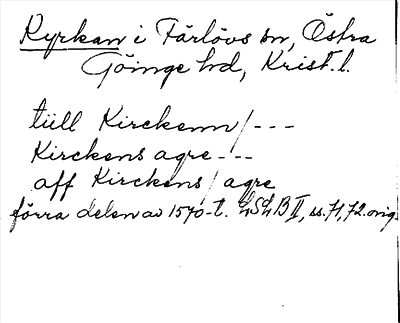 Kyrkan i Färlövs sn, Östra
Göinge hd, Krist. l.
tiill Kirckenn / ---
Kirckens agre ---
aff Kirckens / agre
förra delen av 1570-t. LSLB II, ss. 71, 72. orig.